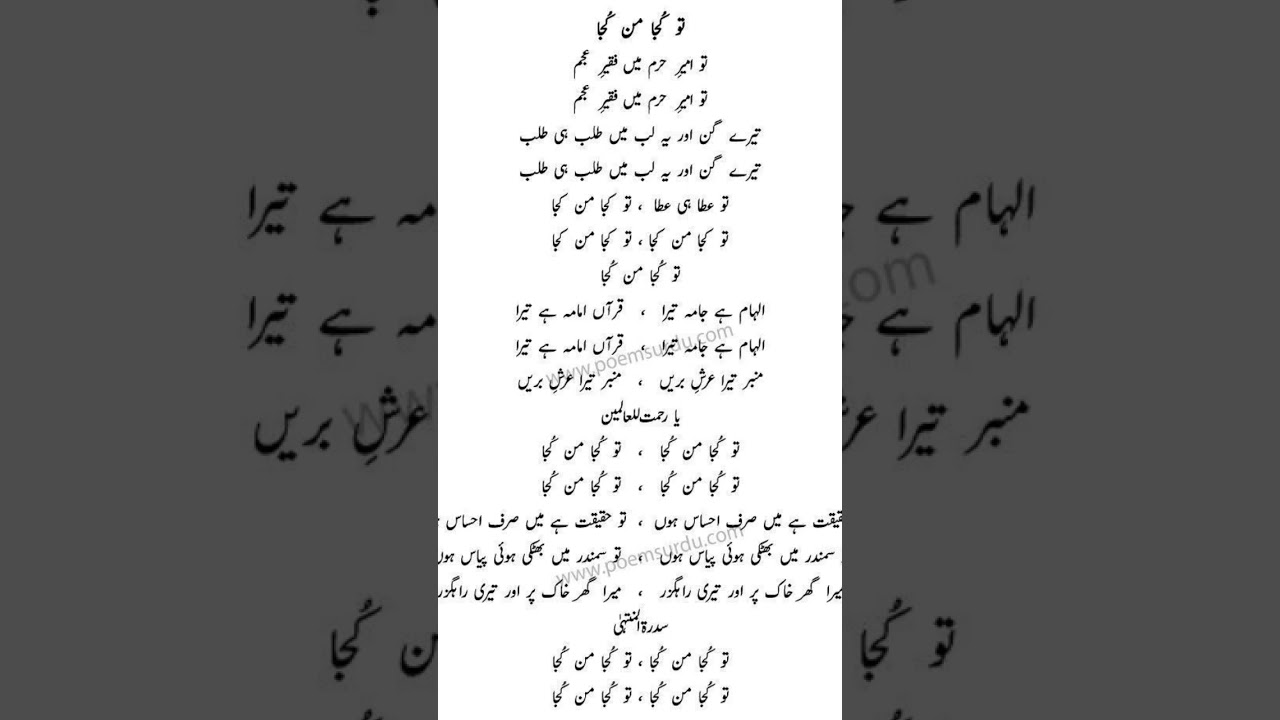 تو کُجا من کُجا
تو امیرِ حرم میں فقیرِ عجم
تو امیرِ حرم میں فقیرِ عجم
تیرے گن اور یہ لب میں طلب ہی طلب
تیرے گن اور یہ لب میں طلب ہی طلب
تو عطا ہی عطا ، تو کجا من کجا
تو کجا من کجا ، تو کجا من کجا
تو کُجا من کُجا
الہام ہے جامہ تیرا ، قرآں امامہ ہے تیرا
الہام ہے جامہ تیرا ، قرآں امامہ ہے تیرا
منبر تیرا عرشِ بریں ، منبر تیرا عرشِ بریں
یا رحمت للعالمین
تو کُجا من کُجا ، تو کُجا من کُجا
تو کُجا من کُجا ، تو کُجا من کُجا
ہے میں صرف احساس ہوں ، تو حقیقت ہے میں صرف احساس
سمندر میں بھٹکی ہوئی پیاس ہوں ، تو سمندر میں بھٹکی ہوئی پیاس ہوں
میرا گھر خاک پر اور تیری راہگزر ، میرا گھر خاک پر اور تیری راہگزر
سدرۃ المنتہیٰ
تو کُجا من کُجا ، تو کُجا من کُجا
تو کُجا من کُجا ، تو کُجا من کُجا
www.poemsurdu.com
www.poemsurdu.com